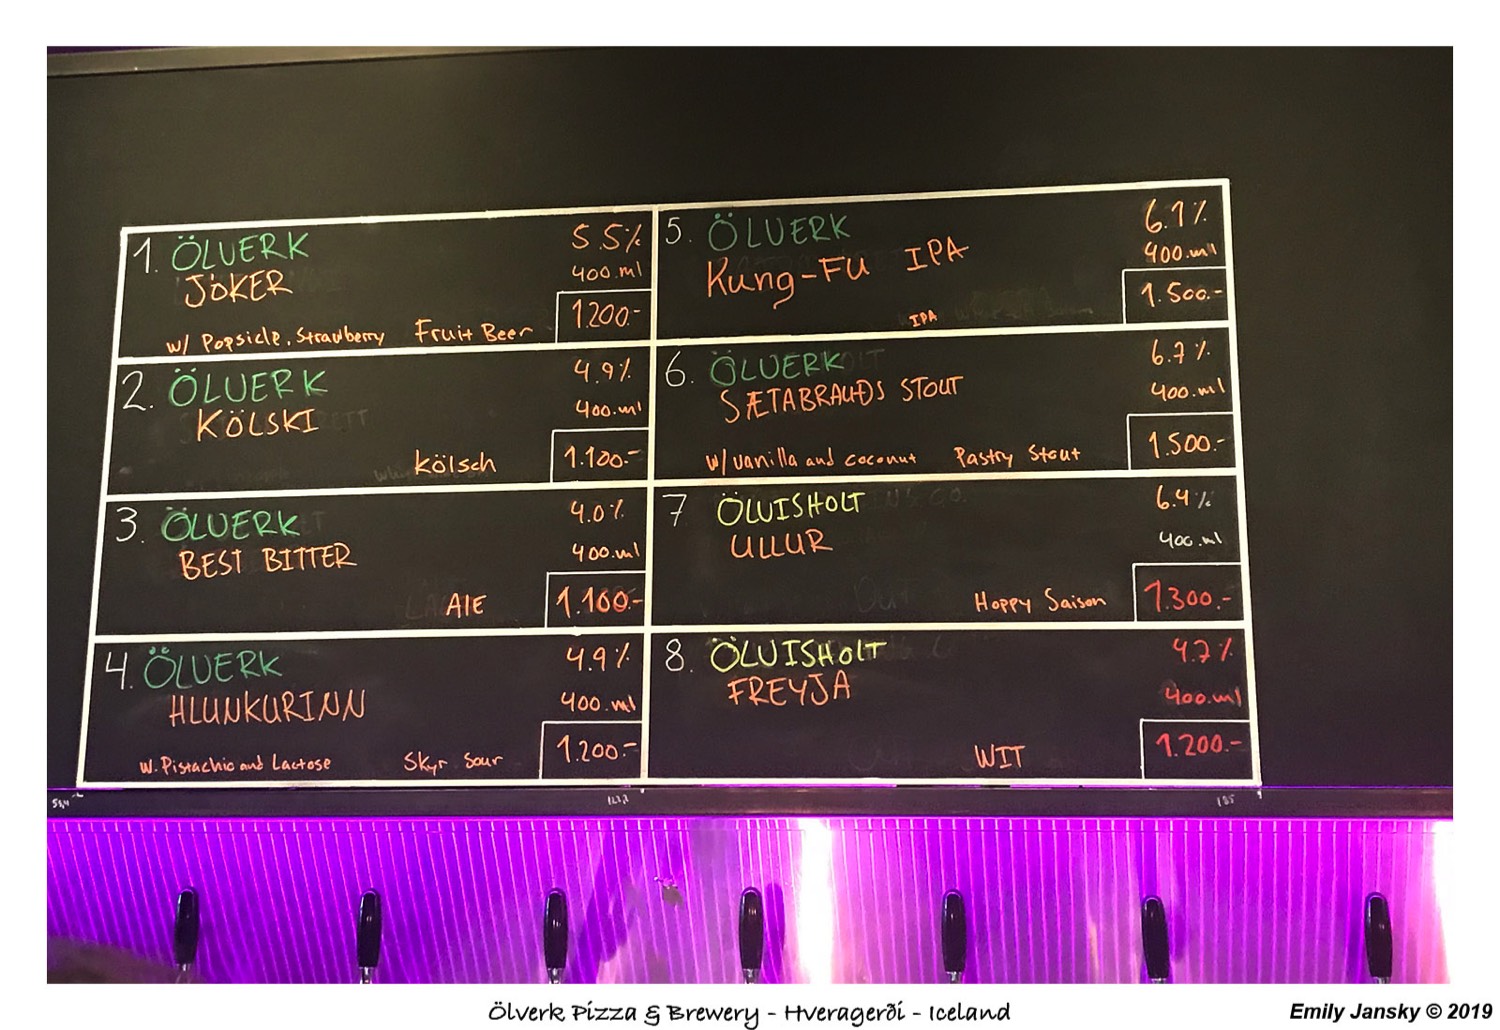 1. ÖLVERK 5.5%
JÓKER 400.ml
w/ Popsicle, Strawberry Fruit Beer 1200.-
2. ÖLVERK 4.9%
KÖLSKI 400.ml
Kölsch 1.100.-
3. ÖLVERK 4.0%
BEST BITTER 400.ml
AlE 1.100.-
4. ÖLVERK 4.9%
HLUNKURINN 400.ml
w. Pistachio and Lactose Skyr Sour 1.200.-
5. ÖLVERK
Kung-Fu IPA 400.ml
IPA 1.500.-
6. ÖLVERK 6.7%
SÆTABRAUÐS STOUT 400.ml
w/ vanilla and coconut Pastry Stout 1.500.-
7 ÖLVISHOLT 6.4%
ULLUR 400.ml
Hoppy Saison 1.300.-
8. ÖLVISHOLT 4.7%
FREYJA 400.ml
WIT 1.200.-
Ölverk Pizza & Brewery - Hveragerðí - Iceland
Emily Jansky © 2019